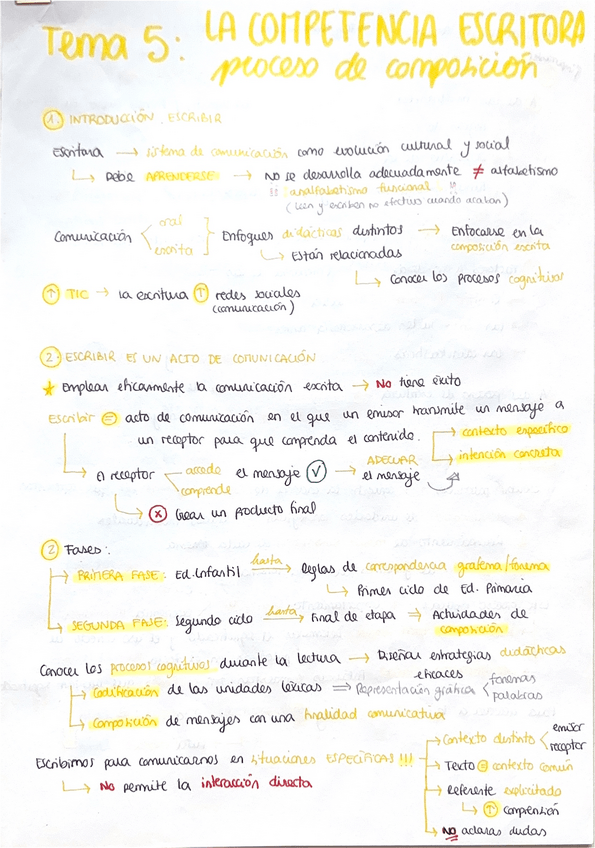 Tema 5: LA COMPETENCIA ESCRITORA
proceso de composición
1. INTRODUCCIÓN. ESCRIBIR
Escritura → sistema de comunicación como evolución cultural y social
↳ Debe APRENDERSE → no se desarrolla adecuadamente ≠ alfabetismo
!! analfabetismo funcional !!
(leen y escriben no efectivo cuando acaban)
Comunicación < oral escrita } Enfoques didácticos distintos → Enfocarse en la composición escrita
↳ Están relacionadas
↳ Conocer los procesos cognitivos
↑ TIC → la escritura ↑ redes sociales
(comunicación)
2. ESCRIBIR ES UN ACTO DE COMUNICACIÓN
★ Emplear eficazmente la comunicación escrita → No tiene éxito
Escribir = acto de comunicación en el que un emisor transmite un mensaje a
un receptor para que comprenda el contenido.
→ contexto específico
→ intención concreta
↳ el receptor accede comprende el mensaje ✓ → ADECUAR el mensaje
↳ ⓧ Crear un producto final
2 Fases:
→ PRIMERA FASE: Ed. Infantil hasta → Reglas de correspondencia grafema/fonema
↳ Primer ciclo de Ed. Primaria
→ SEGUNDA FASE: Segundo ciclo hasta → final de etapa ⇒ Actividades de composición
Conocer los procesos cognitivos durante la lectura → Diseñar estrategias didácticas
eficaces
→ Codificación de las unidades léxicas ⇒ Representación gráfica < fonemas palabras
→ Composición de mensajes con una finalidad comunicativa
Escribimos para comunicarnos en situaciones ESPECÍFICAS !!!
↳ No permite la interacción directa
→ Contexto distinto < emisor receptor
→ Texto = contexto común
→ Referente explicitado
↳ ↑ comprensión
→ NO aclaras dudas